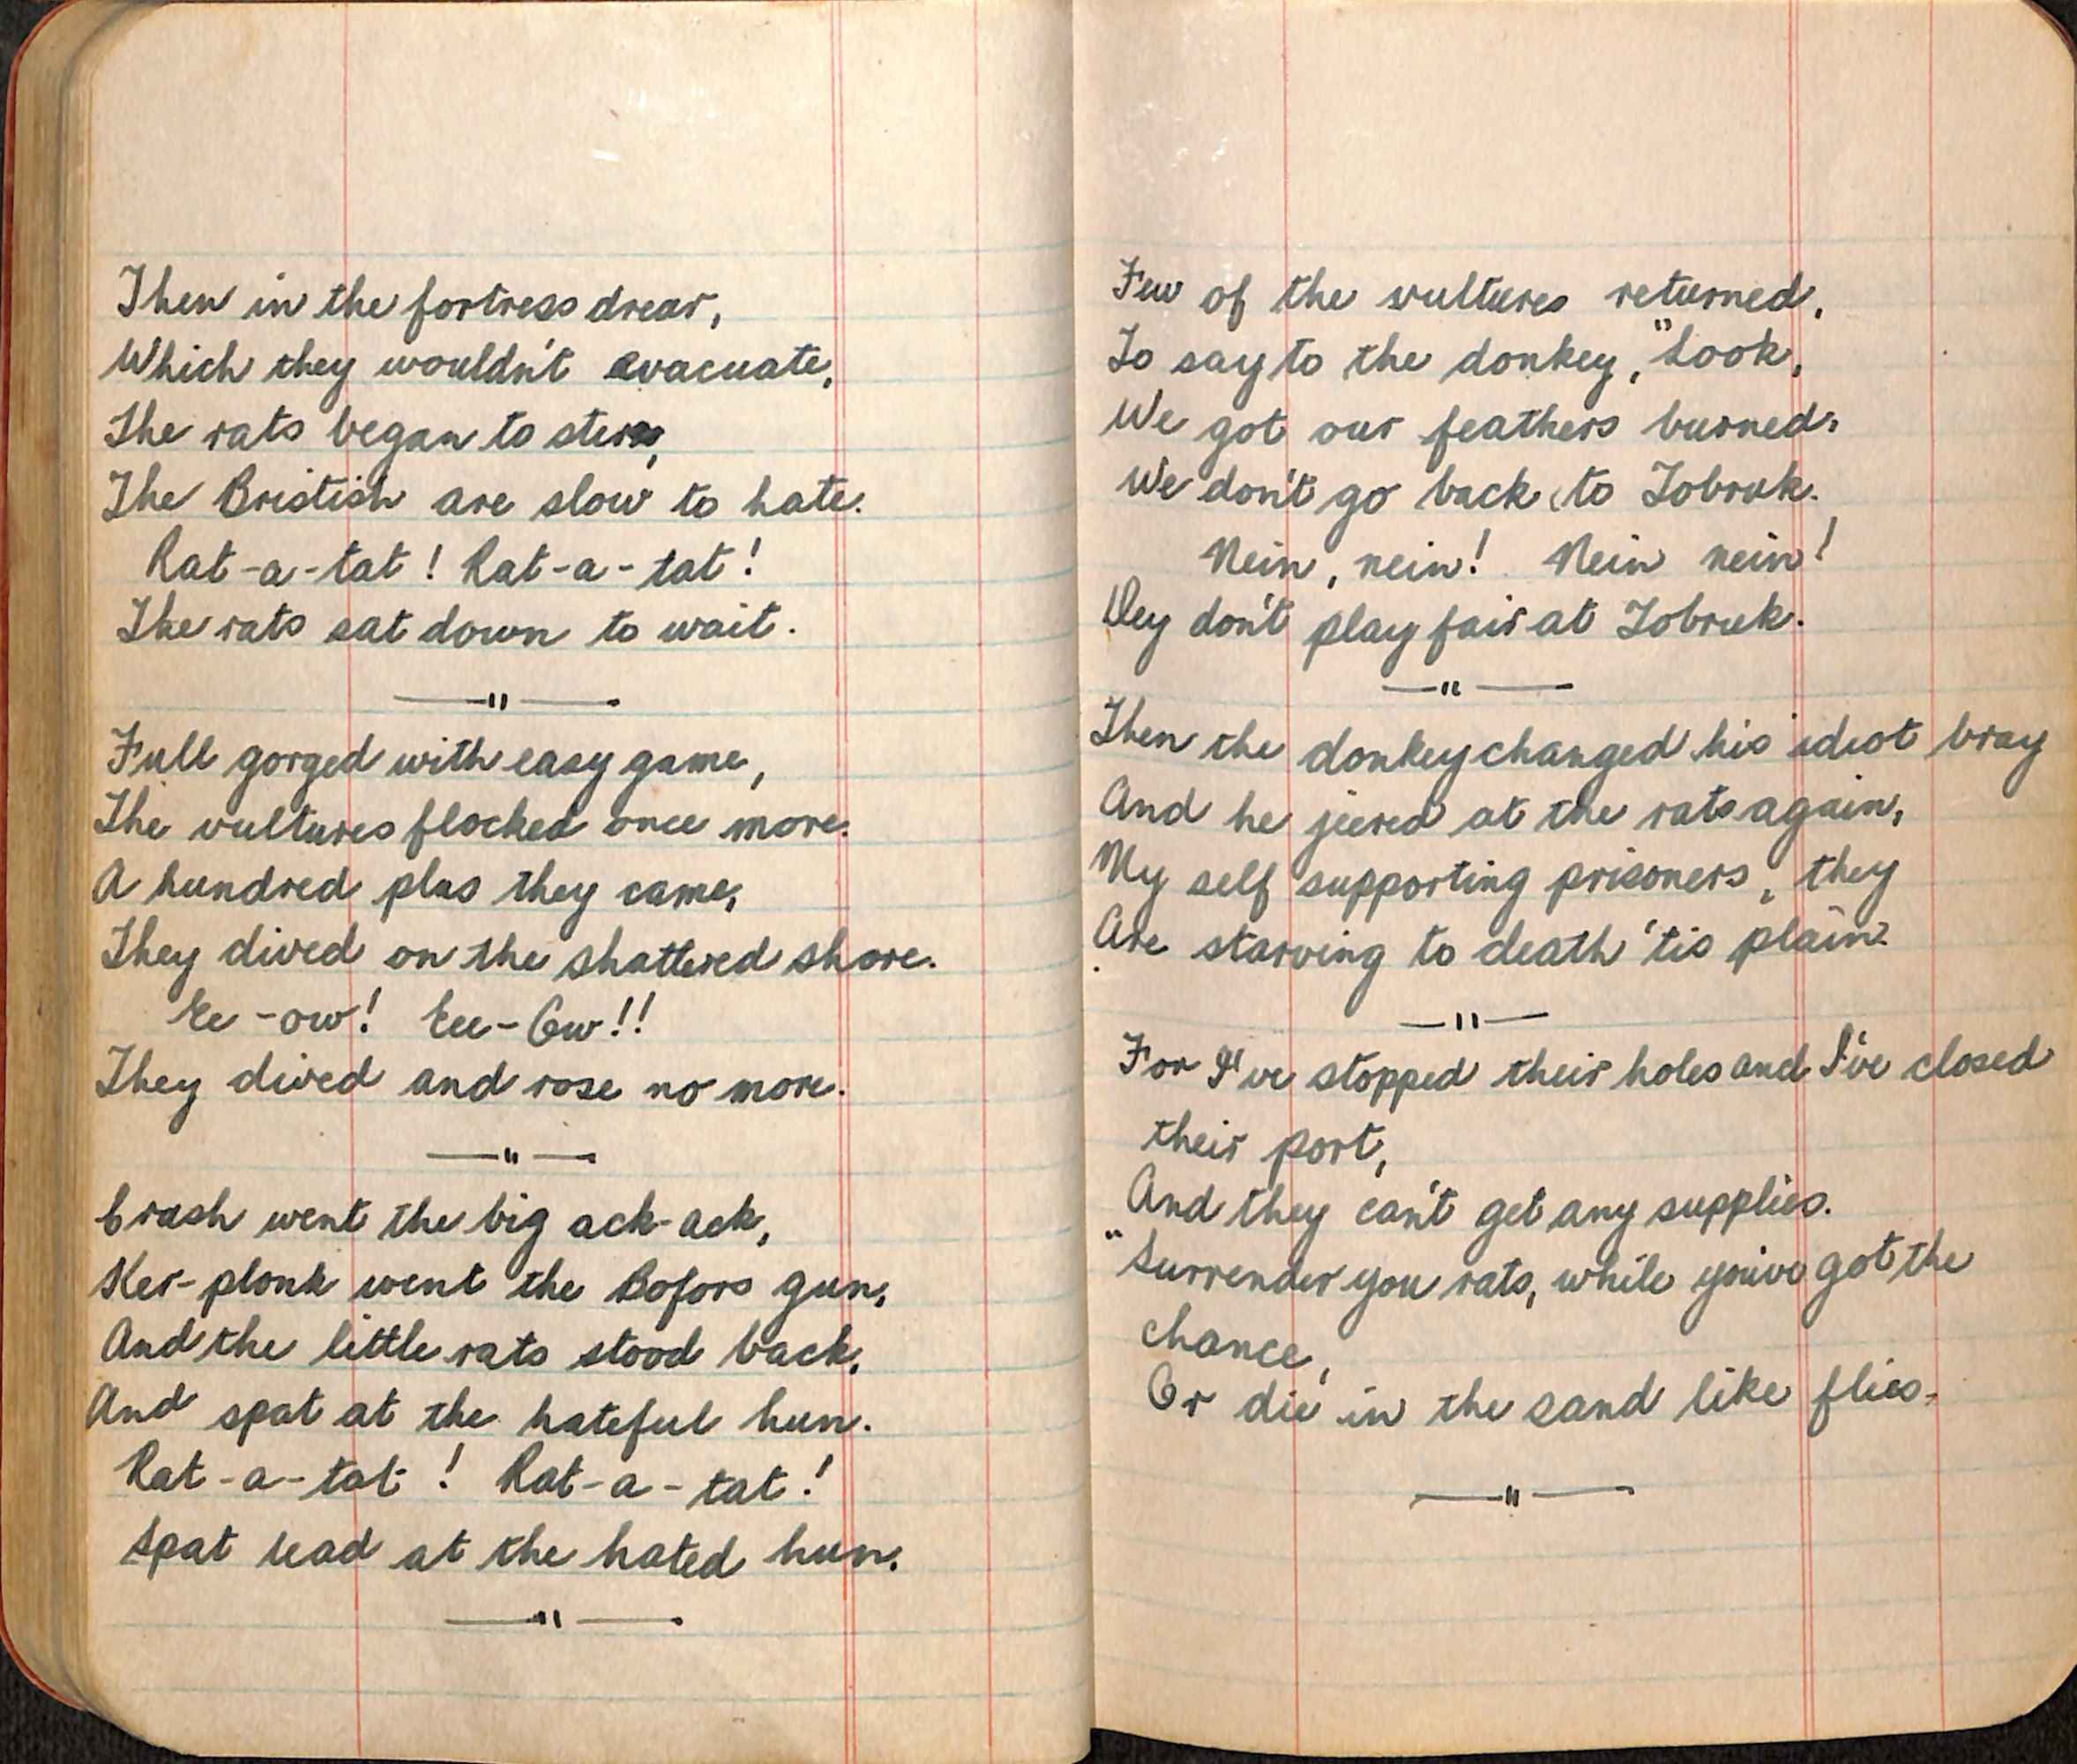 Then in the fortress drear,
Which they wouldn't evacuate,
The rats began to
The Bristish are slow to hate.
Rat-a-tat! Rat-a-tat!
The rats sat down to wait.
Full gorged with easy game,
The vultures flocked once more.
A hundred plus they came,
They dived on the shattered shore.
Ee-ow! Eee-Ow!!
They dived and rose no more.
Crash went the big ack-ack,
Ker-plonk went the Bofors gun,
And the little rats stood back,
And spat at the hateful hun.
Rat-a-tat! Rat-a-tat!
Spat lead at the hated hun.
Few of the vultures returned,
To say to the donkey, "Look,
We got our feathers burned,
We don't go back to Tobruk.
Nein, nein! Nein nein!
Dey don't play fair at Tobruk.
Then the donkey changed his idiot bray
And he jeered at the rats again,
My self supporting prisoners, they
Are starving to death 'tis plain.
For I've stopped their holes and I've closed
their port,
And they can't get any supplies.
"Surrender you rats, while you've got the
chance,
Or die in the sand like flies.